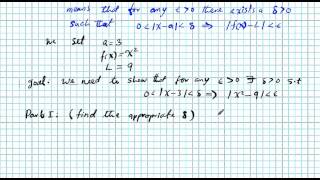 means that for any ε>0 there exists a δ>0
such that 0<|x-a|<δ ⇒ |f(x)-L|<ε
we set a=3
f(x)=x²
L=9
goal. We need to show that for any ε>0 ∃ δ>0 s.t
0<|x-3|<δ ⇒ |x²-9|<ε
Part I: (find the appropriate δ)